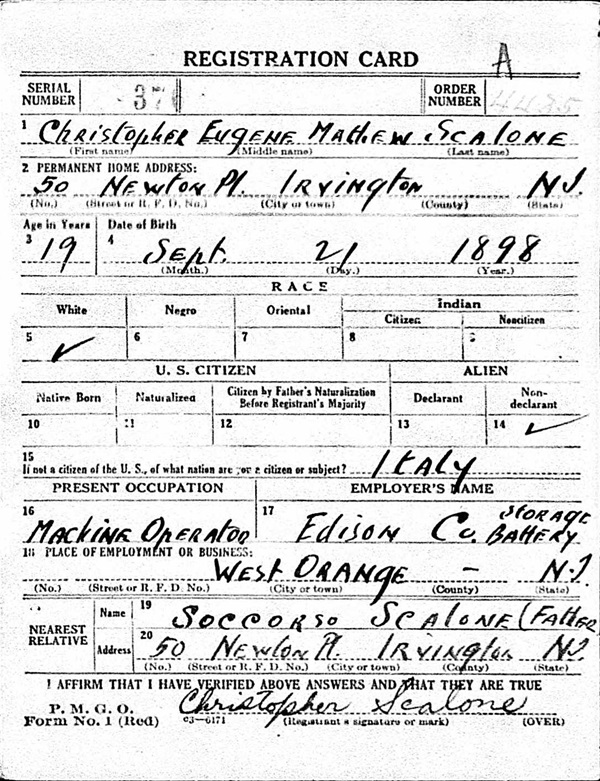 REGISTRATION CARD A
SERIAL NUMBER 376 ORDER NUMBER 4485
1 Christopher Eugene Mathew Scalone
(First name) (Middle name) (Last name)
2 PERMANENT HOME ADDRESS:
50 Newton Pl. Irvington N.J.
(No.) (Street or R. F. D. No.) (City or town) (County) (State)
Age in Years Date of Birth
3 19 4 Sept. 21 1898
(Month.) (Day.) (Year.)
RACE
White Negro Oriental Indian
Citizen Noncitizen
5 ✓ 6 7 8 9
U. S. CITIZEN ALIEN
Native Born Naturalized Citizen by Father's Naturalization Before Registrant's Majority Declarant Non-declarant
10 11 12 13 14 ✓
15
If not a citizen of the U. S., of what nation are you a citizen or subject? Italy
PRESENT OCCUPATION EMPLOYER'S NAME
16 Machine Operator 17 Edison Co. Storage Battery
18 PLACE OF EMPLOYMENT OR BUSINESS:
West Orange - N.J.
(No.) (Street or R. F. D. No.) (City or town) (County) (State)
NEAREST RELATIVE Name 19 Soccorso Scalone (Father
Address 20 50 Newton Pl. Irvington N.J.
(No.) (Street or R. F. D. No.) (City or town) (County) (State)
I AFFIRM THAT I HAVE VERIFIED ABOVE ANSWERS AND THAT THEY ARE TRUE
P. M. G. O.
Form No. 1 (Red) c3—6171 Christopher Scalone
(Registrant's signature or mark) (OVER)